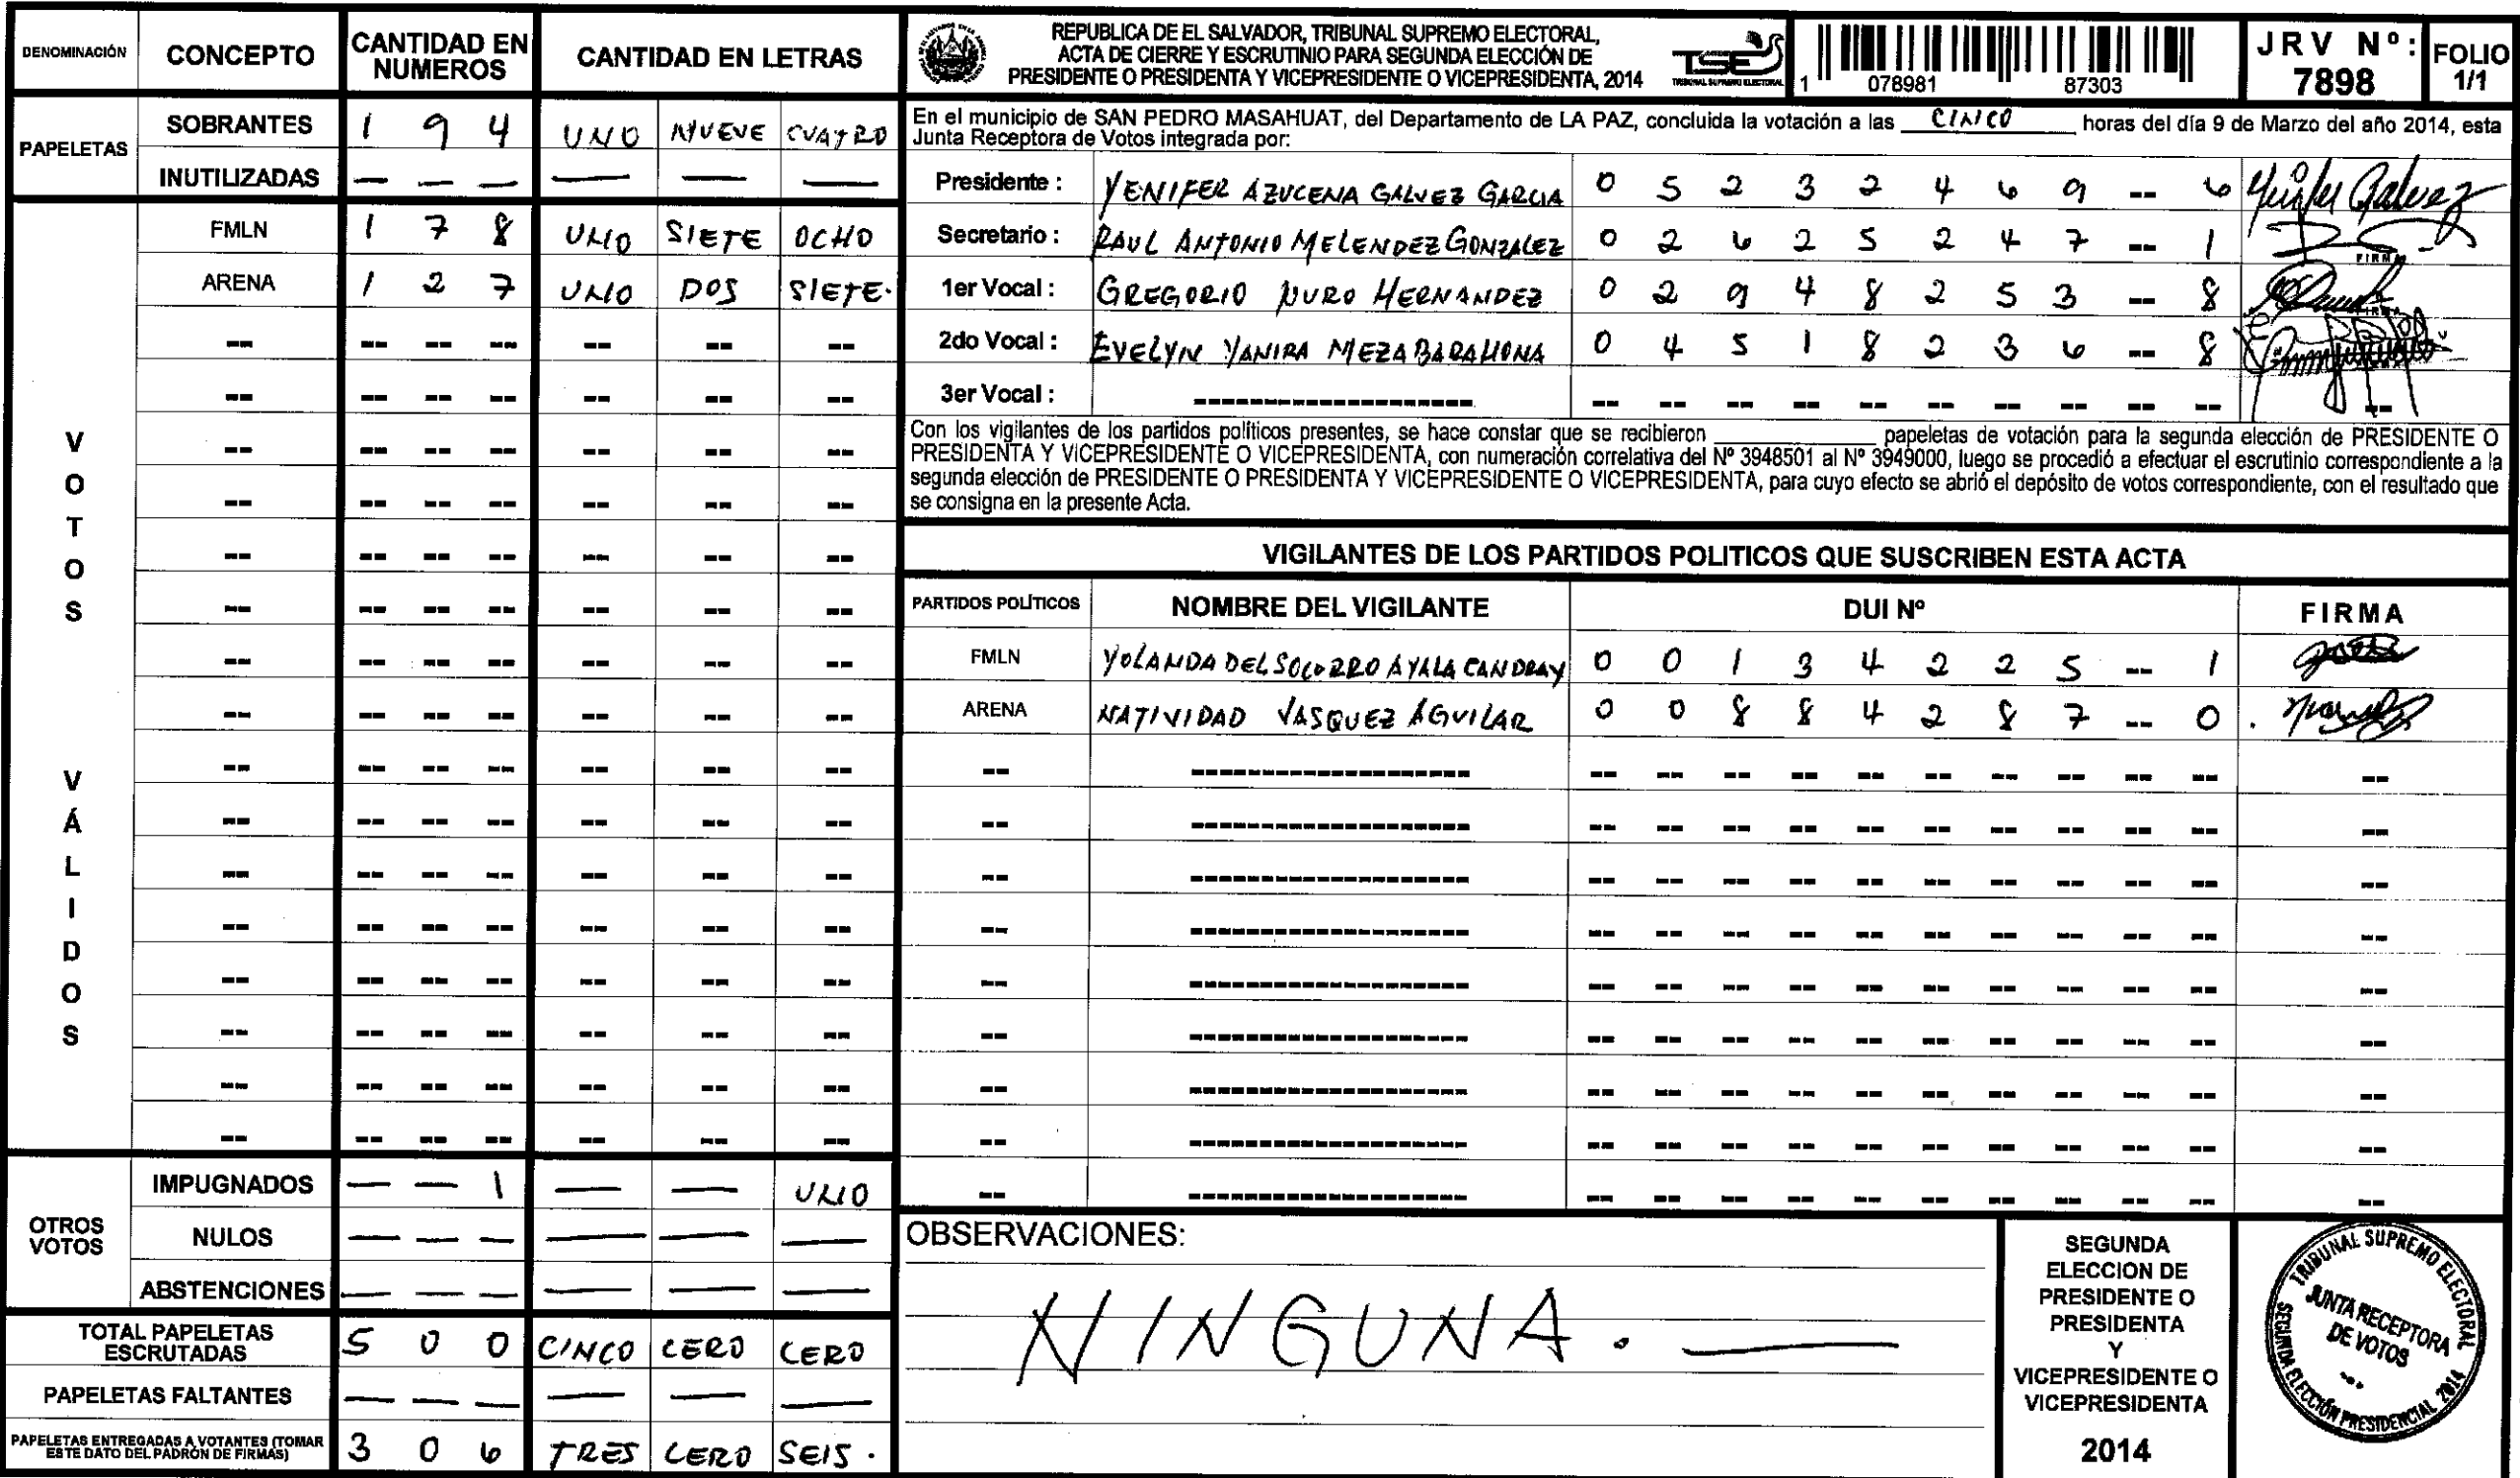 DENOMINACIÓN CONCEPTO CANTIDAD EN NUMEROS CANTIDAD EN LETRAS
PAPELETAS
SOBRANTES 1 9 4 UNO NUEVE CUATRO
INUTILIZADAS — — — — — —
VOTOS VÁLIDOS
FMLN 1 7 8 UNO SIETE OCHO
ARENA 1 2 7 UNO DOS SIETE.
OTROS VOTOS
IMPUGNADOS — — 1 — — UNO
NULOS — — — — — —
ABSTENCIONES — — — — — —
TOTAL PAPELETAS ESCRUTADAS 5 0 0 CINCO CERO CERO
PAPELETAS FALTANTES — — — — — —
PAPELETAS ENTREGADAS A VOTANTES (TOMAR ESTE DATO DEL PADRÓN DE FIRMAS) 3 0 6 TRES CERO SEIS.
REPUBLICA DE EL SALVADOR, TRIBUNAL SUPREMO ELECTORAL,
ACTA DE CIERRE Y ESCRUTINIO PARA SEGUNDA ELECCIÓN DE
PRESIDENTE O PRESIDENTA Y VICEPRESIDENTE O VICEPRESIDENTA, 2014
TSE
TRIBUNAL SUPREMO ELECTORAL
1 078981 87303
JRV Nº: 7898
FOLIO 1/1
En el municipio de SAN PEDRO MASAHUAT, del Departamento de LA PAZ, concluida la votación a las CINCO horas del día 9 de Marzo del año 2014, esta
Junta Receptora de Votos integrada por:
Presidente : YENIFER AZUCENA GALVEZ GARCIA 0 5 2 3 2 4 6 9 -- 6
Secretario : RAUL ANTONIO MELENDEZ GONZALEZ 0 2 6 2 5 2 4 7 -- 1
FIRMA
1er Vocal : GREGORIO NURO HERNANDEZ 0 2 9 4 8 2 5 3 -- 8
2do Vocal : EVELYN YANIRA MEZA BARAHONA 0 4 5 1 8 2 3 6 -- 8
3er Vocal :
Con los vigilantes de los partidos políticos presentes, se hace constar que se recibieron ____ papeletas de votación para la segunda elección de PRESIDENTE O
PRESIDENTA Y VICEPRESIDENTE O VICEPRESIDENTA, con numeración correlativa del Nº 3948501 al Nº 3949000, luego se procedió a efectuar el escrutinio correspondiente a la
segunda elección de PRESIDENTE O PRESIDENTA Y VICEPRESIDENTE O VICEPRESIDENTA, para cuyo efecto se abrió el depósito de votos correspondiente, con el resultado que
se consigna en la presente Acta.
VIGILANTES DE LOS PARTIDOS POLITICOS QUE SUSCRIBEN ESTA ACTA
PARTIDOS POLÍTICOS NOMBRE DEL VIGILANTE DUI Nº FIRMA
FMLN YOLANDA DEL SOCORRO AYALA CANDRAY 0 0 1 3 4 2 2 5 -- 1
ARENA NATIVIDAD VASQUEZ AGUILAR 0 0 8 8 4 2 8 7 -- 0
OBSERVACIONES:
NINGUNA. —
SEGUNDA
ELECCION DE
PRESIDENTE O
PRESIDENTA
Y
VICEPRESIDENTE O
VICEPRESIDENTA
2014
TRIBUNAL SUPREMO ELECTORAL
JUNTA RECEPTORA
DE VOTOS
SEGUNDA ELECCIÓN PRESIDENCIAL 2014